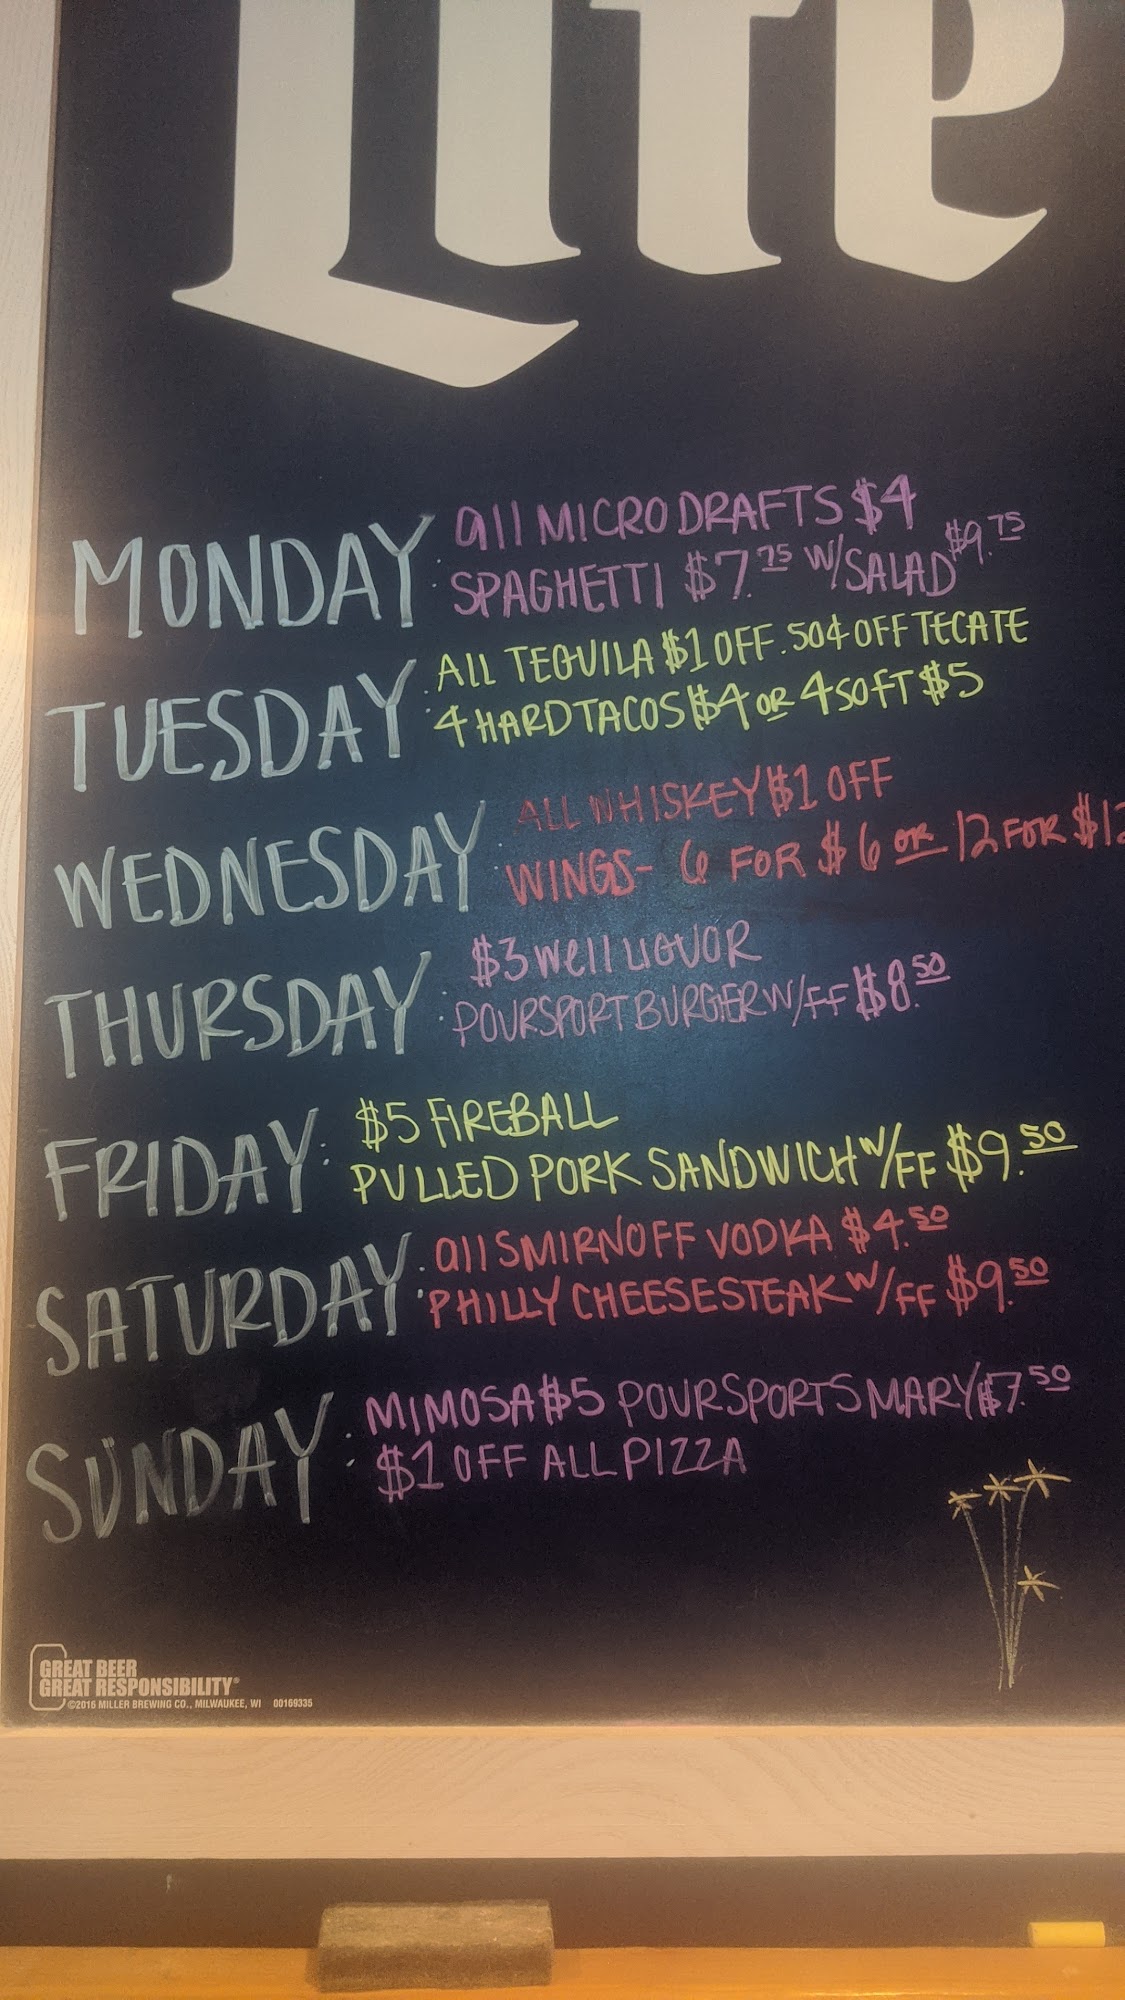 Lite
MONDAY: all MICRO DRAFTS $4
SPAGHETTI $7.75 W/SALAD $9.75
TUESDAY: ALL TEQUILA $1 OFF. 50¢ OFF TECATE
4 HARD TACOS $4 OR 4 SOFT $5
WEDNESDAY: ALL WHISKEY $1 OFF
WINGS- 6 FOR $6 OR 12 FOR $12
THURSDAY: $3 well LIQUOR
POURSPORT BURGER W/FF $8.50
FRIDAY: $5 FIREBALL
PULLED PORK SANDWICH W/FF $9.50
SATURDAY: all SMIRNOFF VODKA $4.50
PHILLY CHEESESTEAK W/FF $9.50
SUNDAY: MIMOSA $5 POURSPORTS MARY $7.50
$1 OFF ALL PIZZA
GREAT BEER
GREAT RESPONSIBILITY®
©2016 MILLER BREWING CO., MILWAUKEE, WI 00169335